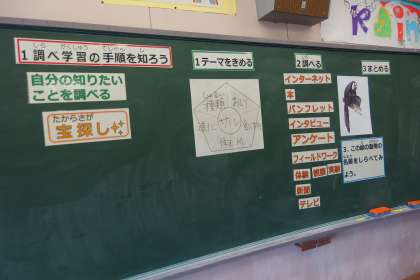 1調べ学習の手順を知ろう
しら がくしゅう てじゅん し
自分の知りたい
ことを調べる
たからさが
宝探し
1テーマをきめる
サル
2調べる
インターネット
本
パンフレット
インタビュー
アンケート
フィールドワーク
体験 観察 実験
新聞
テレビ
3まとめる
3、この絵の動物の
名前をしらべてみ
よう。